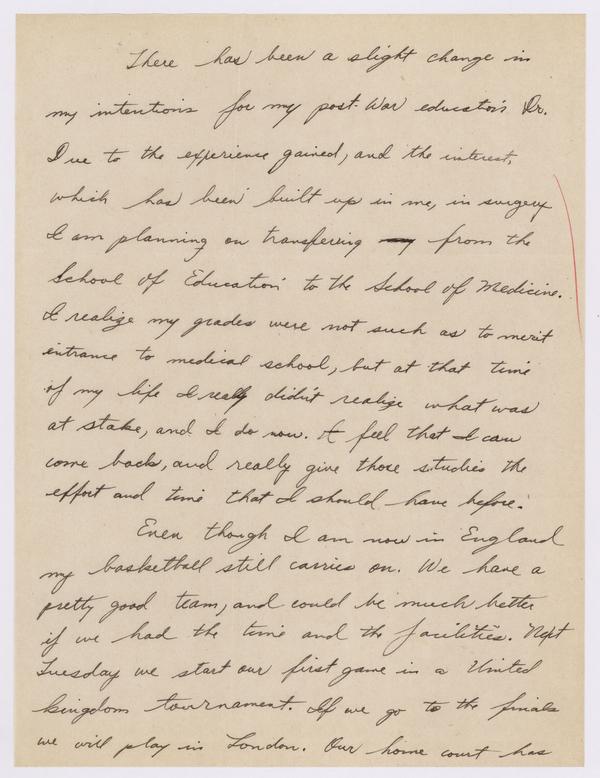 There has been a slight change in
my intentions for my post-War education Dr.
Due to the experience gained, and the interest,
which has been built up in me, in surgery
I am planning on transferring from the
School of Education to the School of Medicine.
I realize my grades were not such as to merit
entrance to medical school, but at that time
of my life I really didn't realize what was
at stake, and I do now. I feel that I can
come back, and really give those studies the
effort and time that I should have before.
Even though I am now in England
my basketball still carries on. We have a
pretty good team, and could be much better
if we had the time and the facilities. Next
Tuesday we start our first game in a United
Kingdom tournament. If we go to the finals
we will play in London. Our home court has